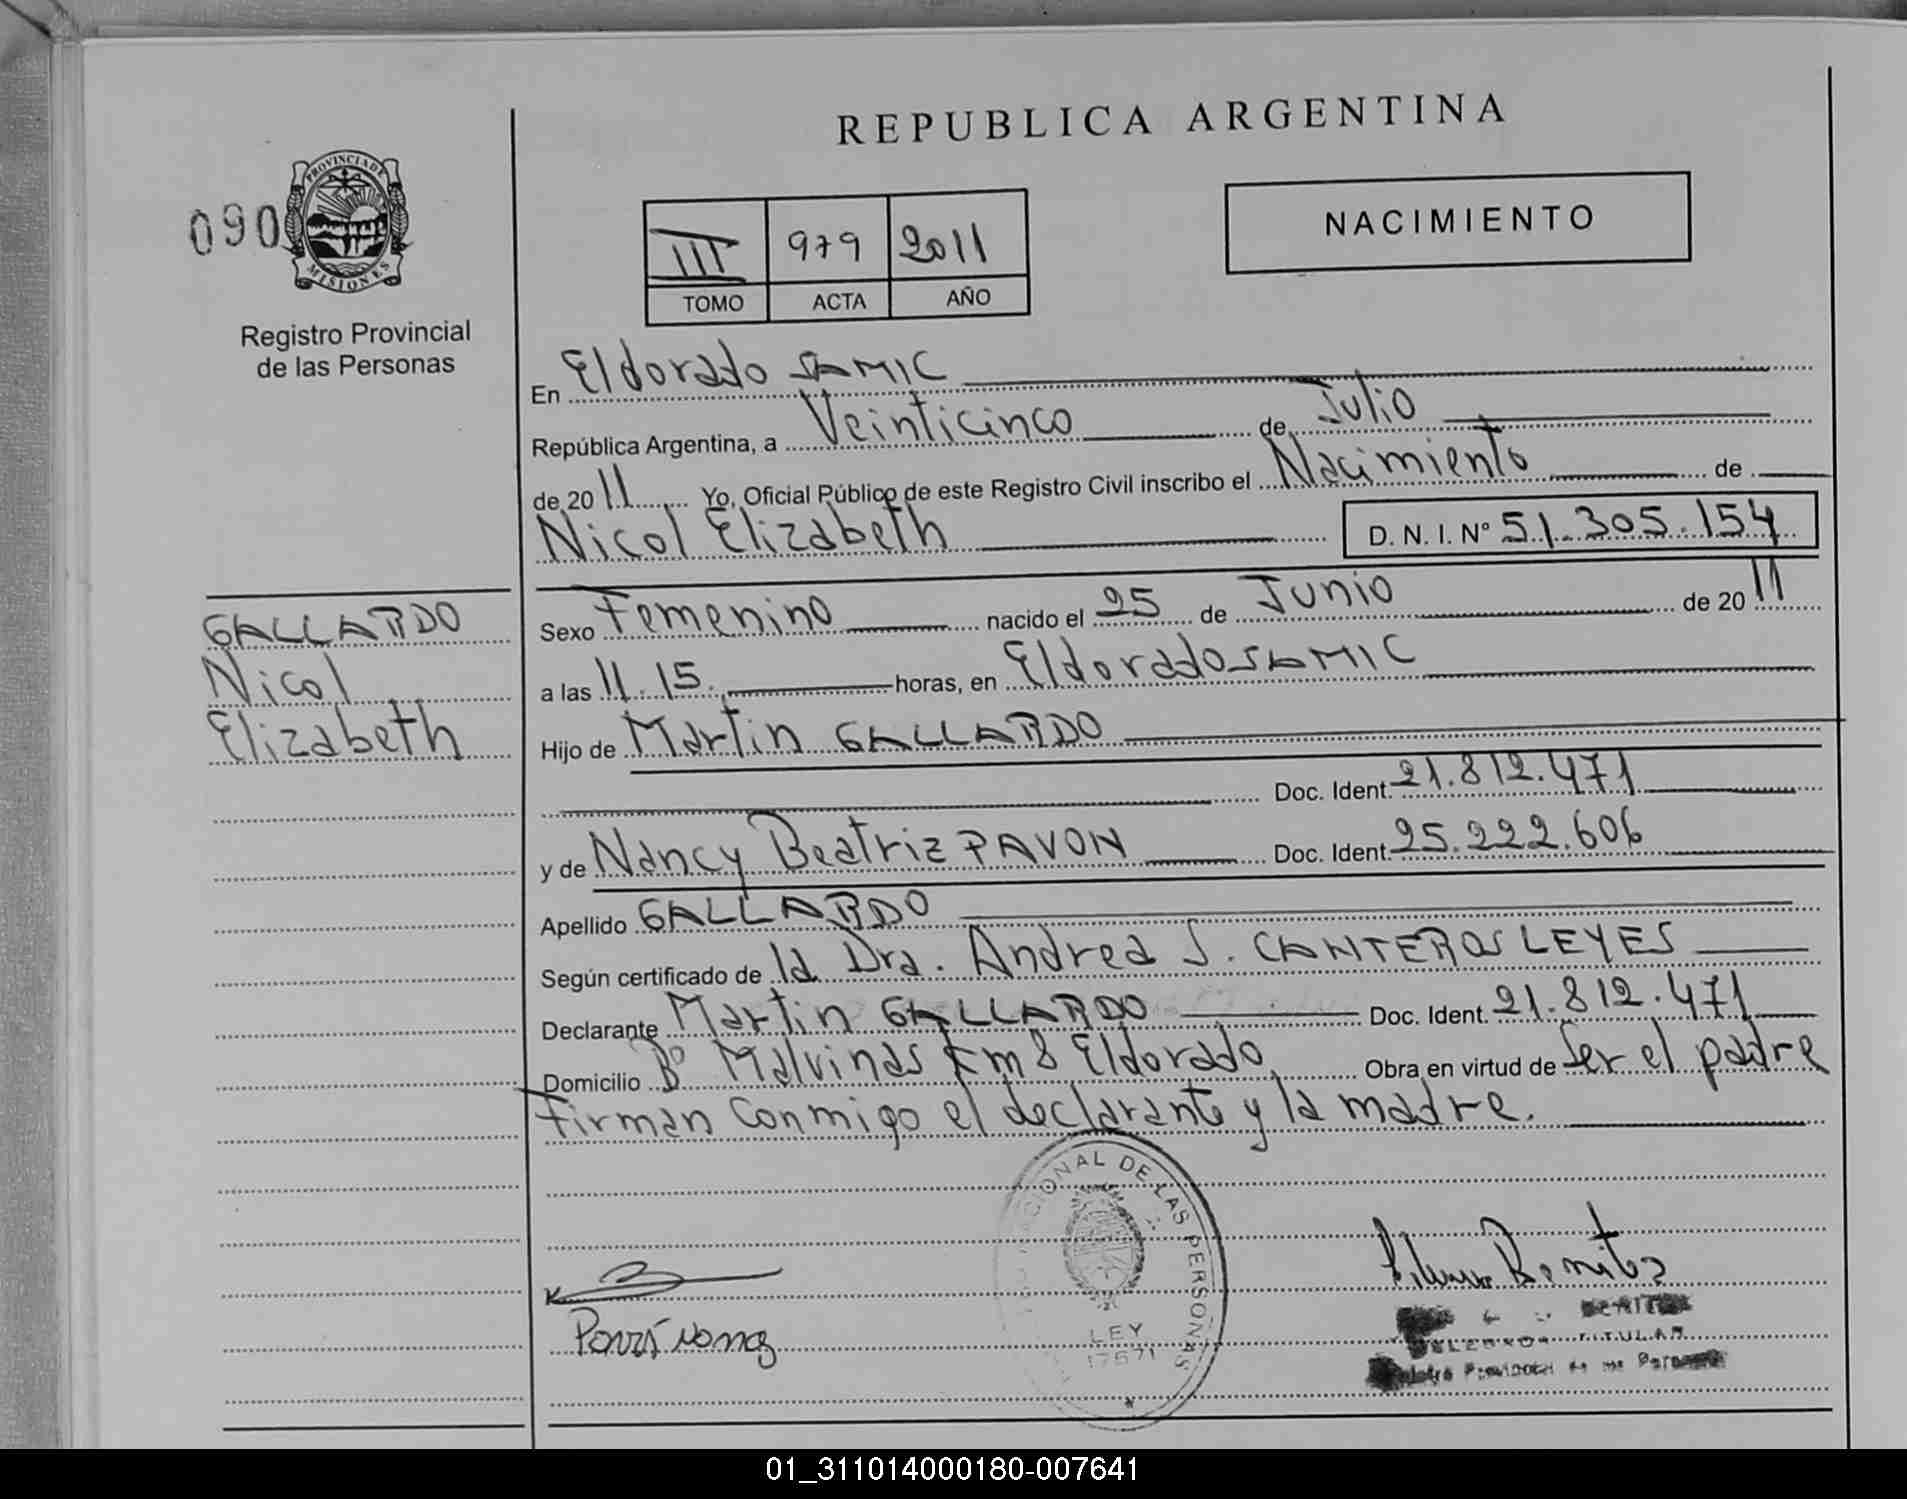 REPUBLICA ARGENTINA
090
PROVINCIA DE MISIONES
Registro Provincial
de las Personas
III 979 2011
TOMO ACTA AÑO
NACIMIENTO
En Eldorado SAMIC
República Argentina, a Veinticinco de Julio
de 2011 Yo, Oficial Público de este Registro Civil inscribo el Nacimiento de
Nicol Elizabeth D. N. I. N° 51.305.154
GALLARDO
Nicol
Elizabeth
Sexo Femenino nacido el 25 de Junio de 2011
a las 11.15. horas, en Eldorado SAMIC
Hijo de Martin GALLARDO
Doc. Ident. 21.812.471
y de Nancy Beatriz PAVON Doc. Ident. 25.222.606
Apellido GALLARDO
Según certificado de la Dra. Andrea S. CANTEROS LEYES
Declarante Martin GALLARDO Doc. Ident. 21.812.471
Domicilio B° Malvinas Km 8 Eldorado Obra en virtud de Ser el padre
Firman conmigo el declarante y la madre.
NACIONAL DE LAS PERSONAS
LEY
17671
Benitez
BENITEZ
TITULAR
Provincial de las Personas
01_311014000180-007641